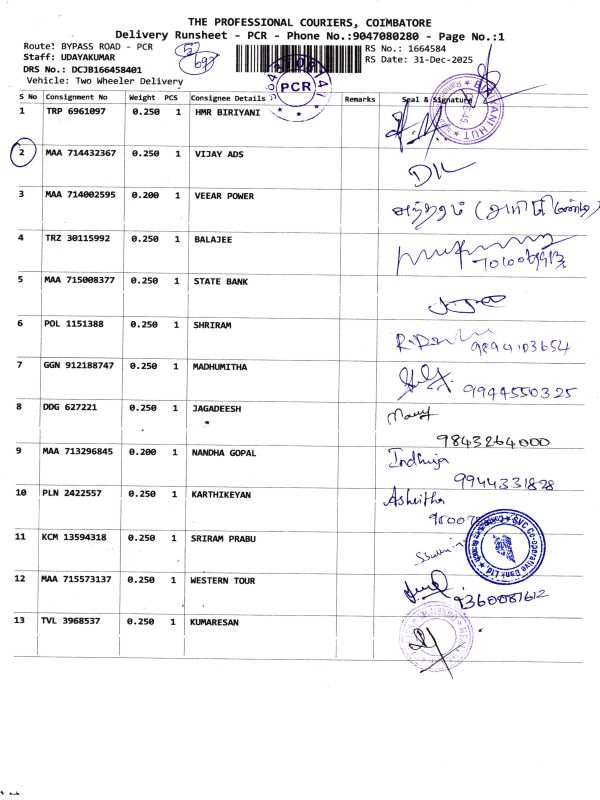 THE PROFESSIONAL COURIERS, COIMBATORE
Delivery Runsheet - PCR - Phone No.:9047080280 - Page No.:1
Route: BYPASS ROAD - PCR
RS No.: 1664584
Staff: UDAYAKUMAR
RS Date: 31-Dec-2025
DRS No.: DCJB166458401
Vehicle: Two Wheeler Delivery
PCR
S No Consignment No Weight PCS Consignee Details Remarks Seal & Signature
1 TRP 6961097 0.250 1 HMR BIRIYANI
2 MAA 714432367 0.250 1 VIJAY ADS
3 MAA 714002595 0.200 1 VEEAR POWER
4 TRZ 30115992 0.250 1 BALAJEE
5 MAA 715008377 0.250 1 STATE BANK
6 POL 1151388 0.250 1 SHRIRAM
9894103654
7 GGN 912188747 0.250 1 MADHUMITHA
9944550325
8 DDG 627221 0.250 1 JAGADEESH
9843264000
9 MAA 713296845 0.200 1 NANDHA GOPAL Indhuja
9944331828
10 PLN 2422557 0.250 1 KARTHIKEYAN
11 KCM 13594318 0.250 1 SRIRAM PRABU
SVC Co-operative Bank Ltd.
12 MAA 715573137 0.250 1 WESTERN TOUR
9360087612
13 TVL 3968537 0.250 1 KUMARESAN